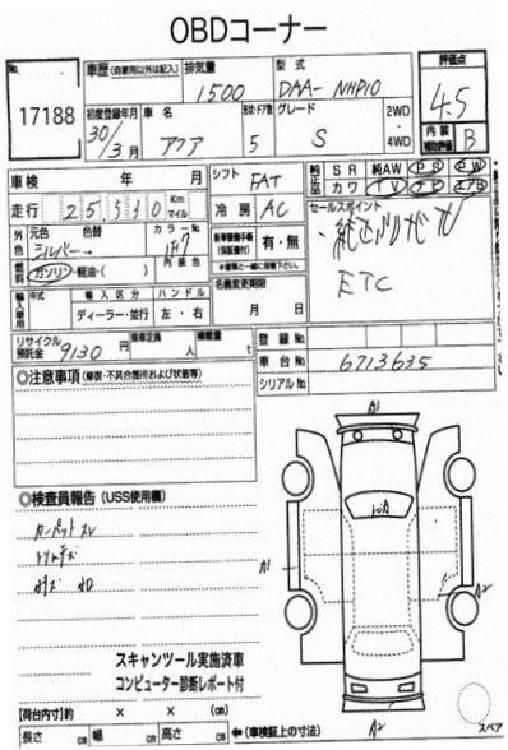 OBDコーナー
No. 17188
車歴(自家用以外は記入) 排気量 1500 型式 DAA-NHP10 評価点 4.5
初度登録年月 30/3月 車名 アクア 形状・ドア数 5 グレード S 2WD・4WD 内装補助評価 B
車検 年 月 シフト FAT 純正品 SR 純AW PS PW
カワ TV ナビ エアB
走行 25,510 Km マイル 冷房 AC セールスポイント
外色 元色 シルバー 色替 カラーNo. 1F7 有・無
燃料 ガソリン・軽油・( ) 内装色 ETC
輸入車用 年式 輸入区分 ハンドル 名義変更期限
ディーラー・並行 左・右 月 日
リサイクル預託金 9130円 乗車定員 人 積載量 t 登録No.
車台No. 6713635
シリアルNo.
◎注意事項(修復・不具合箇所および状態等)
A1
◎検査員報告(USS使用欄)
カーペットスレ
A1
A2
スキャンツール実施済車
コンピューター診断レポート付
【荷台内寸】約 × × (cm)
長さ cm 幅 cm 高さ cm ←(車検証上の寸法) A2 スペア